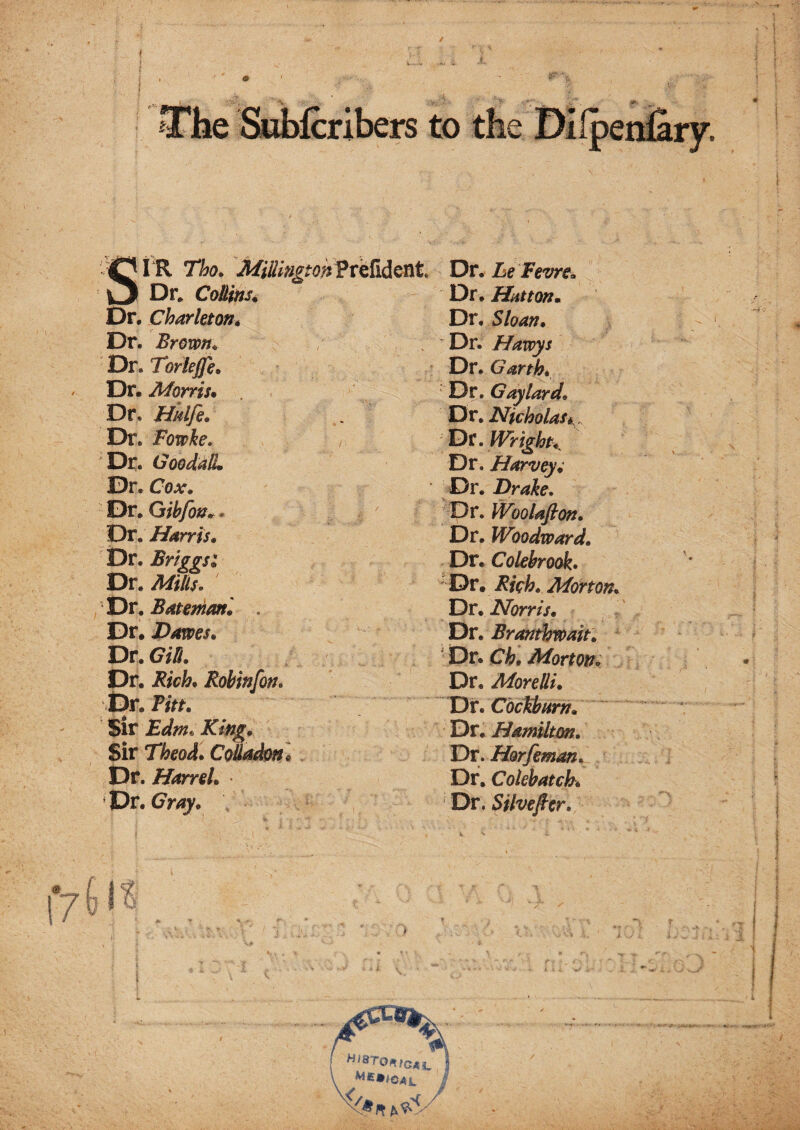 The Subſcribers to the Diſpenſary.
SIR Tho. Millington Preſident.
Dr. Collins.
Dr. Charleton.
Dr. Brown.
Dr. Torleſſe.
Dr. Morris.
Dr. Hulſe.
Dr. Fowke.
Dr. Goodall.
Dr. Cox.
Dr. Gibſon.
Dr. Harris.
Dr. Briggs.
Dr. Mills.
Dr. Bateman.
Dr. Dawes.
Dr. Gill.
Dr. Rich. Robinſon.
Dr. Pitt.
Sir Edm. King.
Sir Theod. Colladon.
Dr. Harrel.
Dr. Gray.
Dr. Le Fevre.
Dr. Hutton.
Dr. Sloan.
Dr. Hawys
Dr. Garth.
Dr. Gaylard.
Dr. Nicholas.
Dr. Wright.
Dr. Harvey.
Dr. Drake.
Dr. Woolaſton.
Dr. Woodward.
Dr. Colebrook.
Dr. Rich. Morton.
Dr. Norris.
Dr. Branthwait.
Dr. Ch. Morton.
Dr. Morelli.
Dr. Cockburn.
Dr. Hamilton.
Dr. Horſeman.
Dr. Colebatch.
Dr. Silveſter.
WELLCOME
HISTORICAL
MEDICAL
LIBRARY